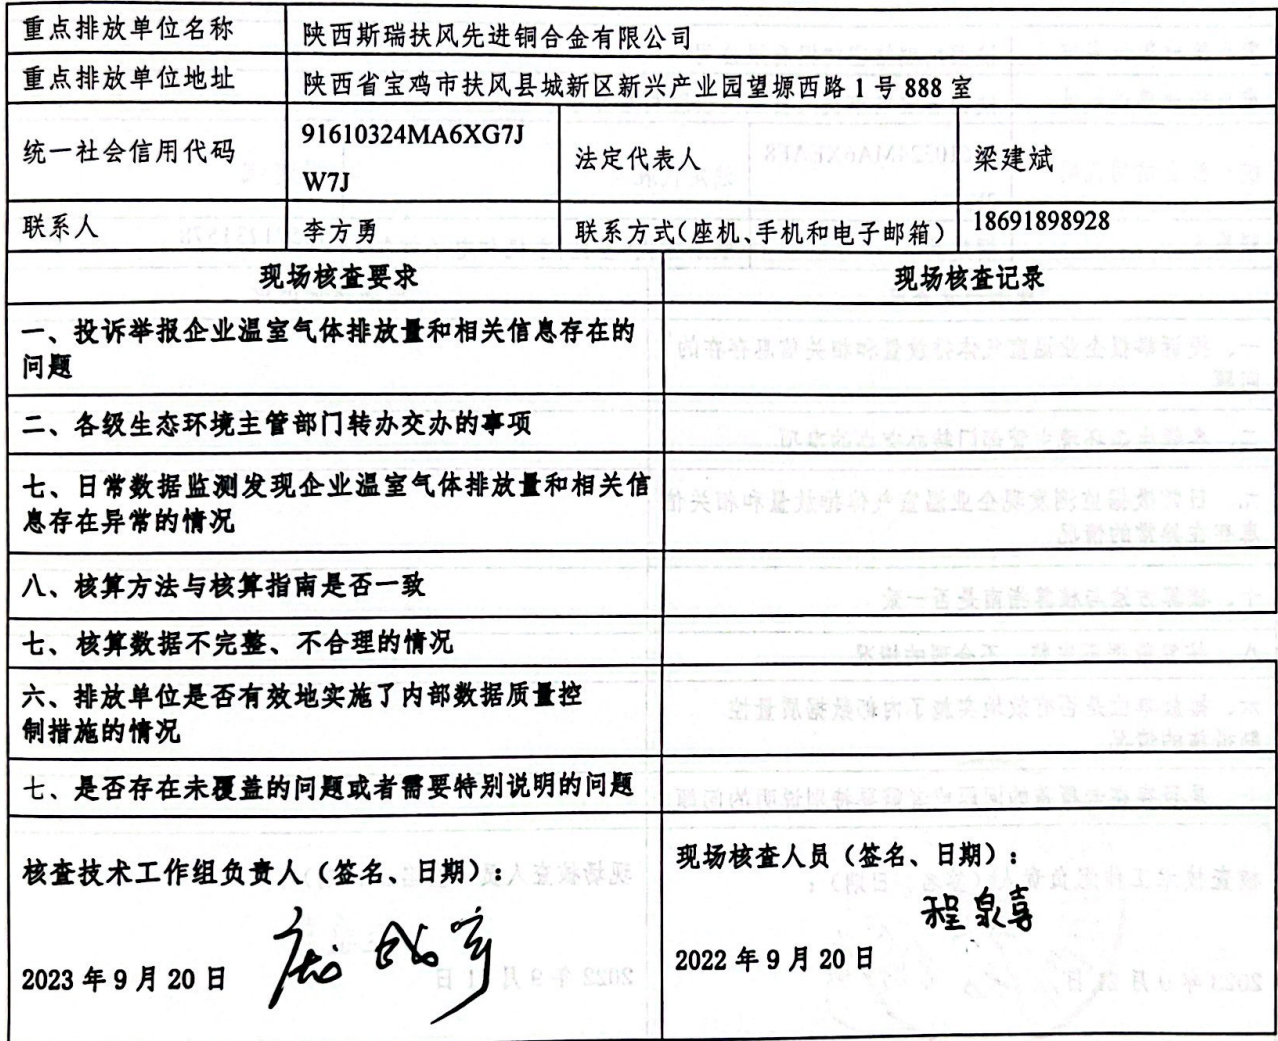 重点排放单位名称 陕西斯瑞扶风先进铜合金有限公司
重点排放单位地址 陕西省宝鸡市扶风县城新区新兴产业园望塬西路 1 号 888 室
统一社会信用代码 91610324MA6XG7J
W7J
法定代表人 梁建斌
联系人 李方勇 联系方式(座机、手机和电子邮箱) 18691898928
现场核查要求 现场核查记录
一、投诉举报企业温室气体排放量和相关信息存在的
问题
二、各级生态环境主管部门转办交办的事项
七、日常数据监测发现企业温室气体排放量和相关信
息存在异常的情况
八、核算方法与核算指南是否一致
七、核算数据不完整、不合理的情况
六、排放单位是否有效地实施了内部数据质量控
制措施的情况
七、是否存在未覆盖的问题或者需要特别说明的问题
核查技术工作组负责人（签名、日期）:
2023 年 9 月 20 日
现场核查人员（签名、日期）:
程泉喜
2022 年 9 月 20 日